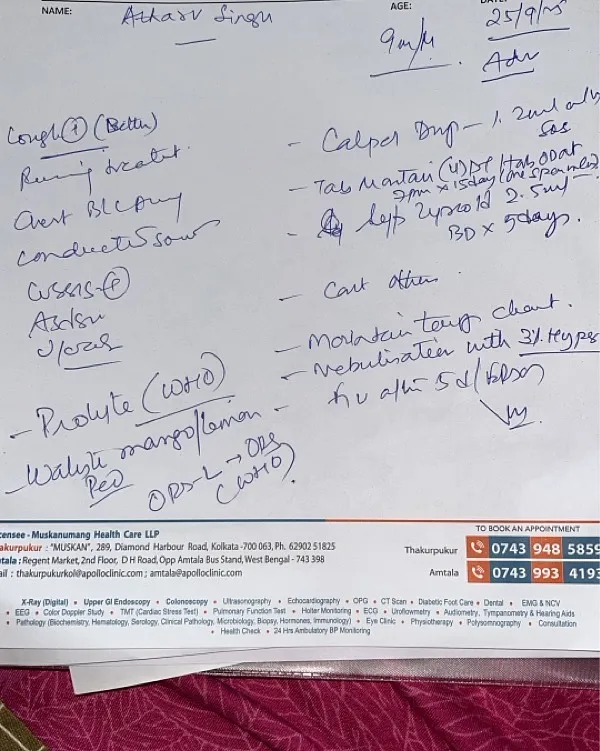 NAME:
Atharv Singh
AGE:
9m/M
25/9/25
Adv
Cough + (Better)
Running
Chest BLC
Conducted sounds
CVS S1S2 +
- Calpol Drop - 1.2ml
SOS
- Tab Montair (4) DT 1 tab OD at
7pm x 15 day
2.5ml
BD x 5 days.
- Cont other
- Maintain temp chart.
- Nebulisation with 3% Hyps
- 5d/
- Prolyte (WHO)
- Walyte mango/lemon
ORS-L → ORS
(WHO)
censee - Muskanumang Health Care LLP
akurpukur : "MUSKAN", 289, Diamond Harbour Road, Kolkata -700 063, Ph. 62902 51825
tala : Regent Market, 2nd Floor, D H Road, Opp Amtala Bus Stand, West Bengal - 743 398
ail : thakurpukurkol@apolloclinic.com ; amtala@apolloclinic.com
TO BOOK AN APPOINTMENT
Thakurpukur 0743 948 5859
Amtala 0743 993 4193
X-Ray (Digital) • Upper GI Endoscopy • Colonoscopy • Ultrasonography • Echocardiography • OPG • CT Scan • Diabetic Foot Care • Dental • EMG & NCV
• EEG • Color Doppler Study • TMT (Cardiac Stress Test) • Pulmonary Function Test • Holter Monitoring • ECG • Uroflowmetry • Audiometry, Tympanometry & Hearing Aids
• Pathology (Biochemistry, Hematology, Serology, Clinical Pathology, Microbiology, Biopsy, Hormones, Immunology) • Eye Clinic • Physiotherapy • Polysomnography • Consultation
• Health Check • 24 Hrs Ambulatory BP Monitoring